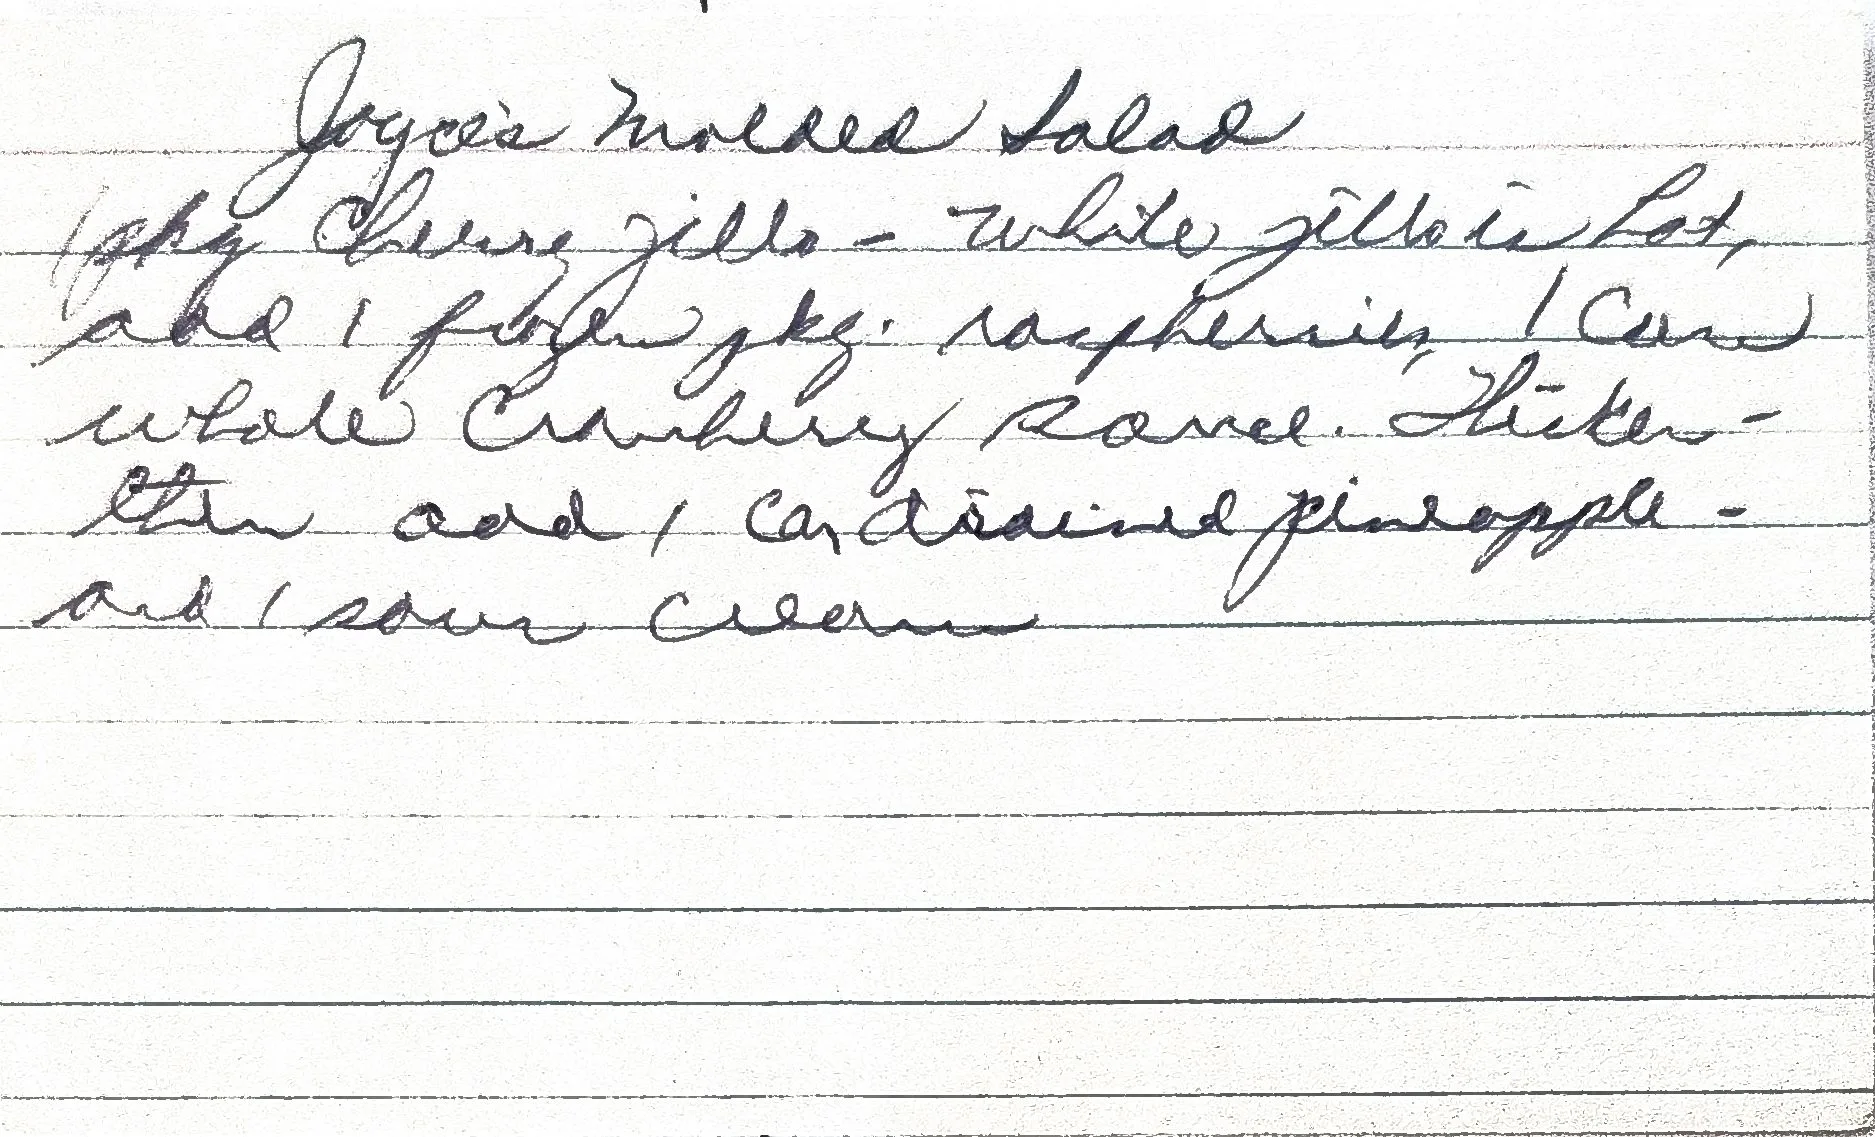 Joyce's Molded Salad
1 pkg Cherry jello - While jello is hot,
add 1 frozen pkg. raspberries, 1 Can
whole Cranberry sauce. Thicken -
then add 1 can drained pineapple -
and 1 sour cream